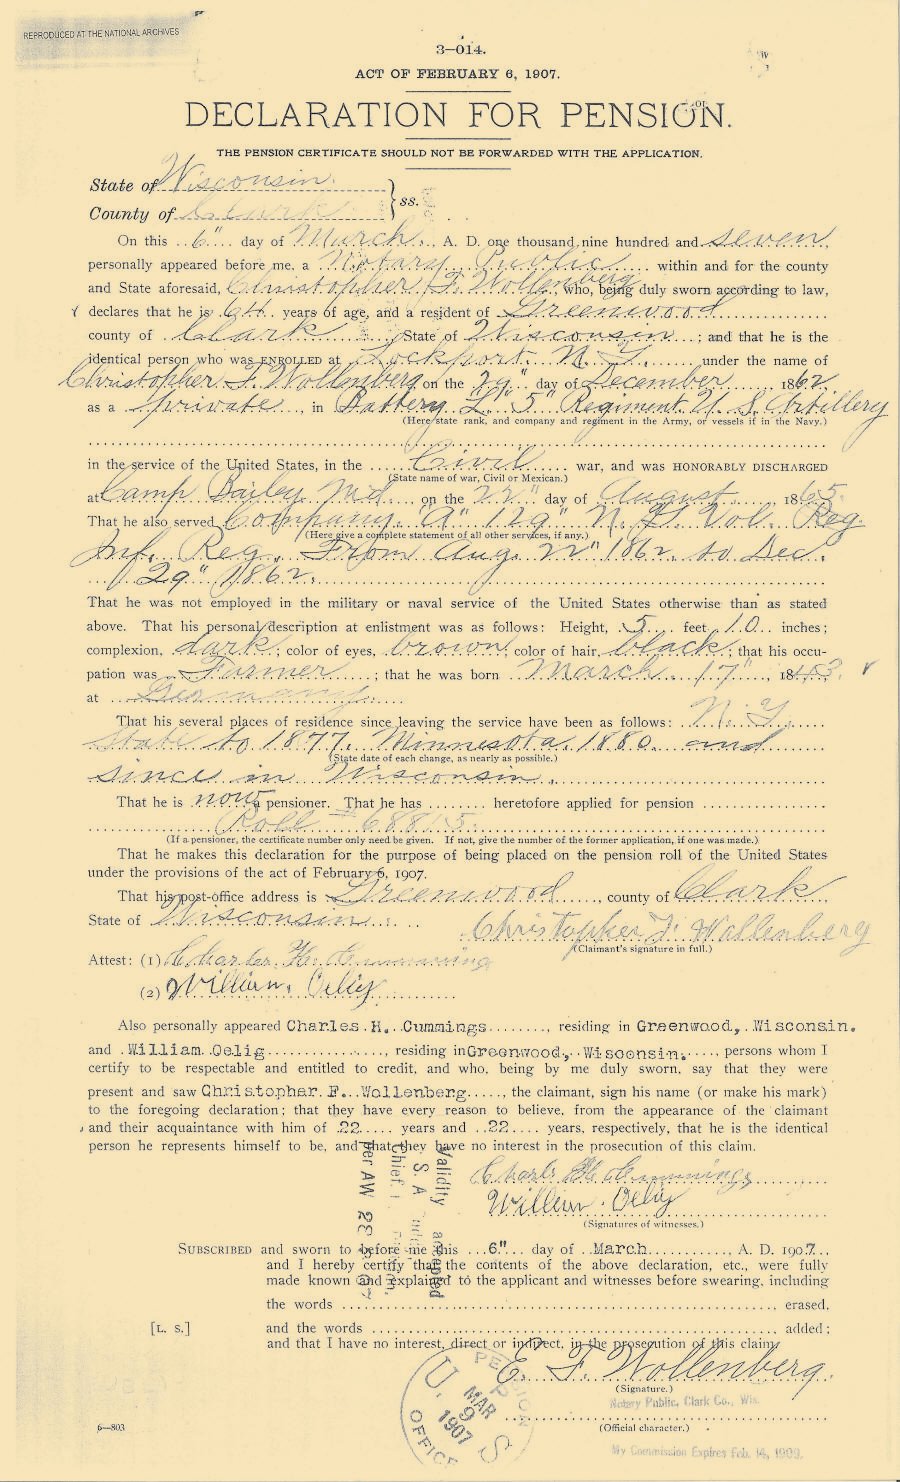 REPRODUCED AT THE NATIONAL ARCHIVES
3—014.
ACT OF FEBRUARY 6, 1907.
DECLARATION FOR PENSION.
THE PENSION CERTIFICATE SHOULD NOT BE FORWARDED WITH THE APPLICATION.
State of Wisconsin
County of Clark } ss.
On this 6" day of March, A. D. one thousand nine hundred and seven,
personally appeared before me, a Notary Public within and for the county
and State aforesaid, Christopher F. Wollenberg, who, being duly sworn according to law,
declares that he is 64 years of age, and a resident of Greenwood
county of Clark State of Wisconsin; and that he is the
identical person who was ENROLLED at Lockport N. Y. under the name of
Christopher F. Wollenberg on the 29" day of December, 1862,
as a private, in Battery "L" 5" Regiment U. S. Artillery
(Here state rank, and company and regiment in the Army, or vessels if in the Navy.)
in the service of the United States, in the Civil war, and was HONORABLY DISCHARGED
(State name of war, Civil or Mexican.)
at Camp Bailey Md. on the 22" day of August, 1865.
That he also served Company "A" 129" N. Y. Vol. Reg.
(Here give a complete statement of all other services, if any.)
Inf. Reg. From Aug. 22" 1862 to Dec.
29" 1862.
That he was not employed in the military or naval service of the United States otherwise than as stated
above. That his personal description at enlistment was as follows: Height, 5 feet 10 inches;
complexion, dark; color of eyes, brown; color of hair, black; that his occu-
pation was Farmer; that he was born March 17", 1843,
at Germany.
That his several places of residence since leaving the service have been as follows: N. Y.
State to 1877. Minnesota 1880 and
(State date of each change, as nearly as possible.)
since in Wisconsin.
That he is now a pensioner. That he has ........ heretofore applied for pension
Roll # 68815.
(If a pensioner, the certificate number only need be given. If not, give the number of the former application, if one was made.)
That he makes this declaration for the purpose of being placed on the pension roll of the United States
under the provisions of the act of February 6, 1907.
That his post-office address is Greenwood, county of Clark,
State of Wisconsin
Christopher F. Wollenberg
(Claimant's signature in full.)
Attest: (1) Charles H. Cummings
(2) William Oelig
Also personally appeared Charles H. Cummings, residing in Greenwood, Wisconsin.
and William Oelig, residing in Greenwood, Wisconsin., persons whom I
certify to be respectable and entitled to credit, and who, being by me duly sworn, say that they were
present and saw Christophar F. Wollenberg, the claimant, sign his name (or make his mark)
to the foregoing declaration; that they have every reason to believe, from the appearance of the claimant
and their acquaintance with him of 22 years and 22 years, respectively, that he is the identical
person he represents himself to be, and that they have no interest in the prosecution of this claim.
Charles H. Cummings
William Oelig
(Signatures of witnesses.)
Validity accepted
S. A.
Chief,
per AW
SUBSCRIBED and sworn to before me this 6" day of March, A. D. 1907,
and I hereby certify that the contents of the above declaration, etc., were fully
made known and explained to the applicant and witnesses before swearing, including
the words ........ erased,
[L. S.]
and the words ........ added;
and that I have no interest, direct or indirect, in the prosecution of this claim.
E. F. Wollenberg.
(Signature.)
Notary Public, Clark Co., Wis.
(Official character.)
My Commission Expires Feb. 14, 1909.
U. S. PENSION OFFICE
MAR 9 1907
6—803